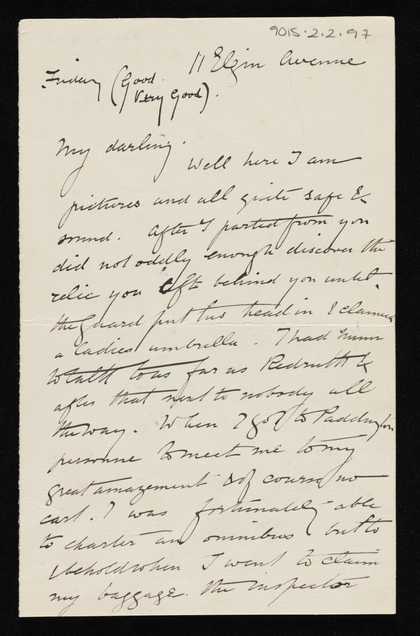 9015.2.2.97
11 Elgin Avenue
Friday (Good.
Very Good).
My darling.
Well here I am
pictures and all quite safe &
sound. After I parted from you
did not oddly enough discover the
relic you left behind you until
the guard put his head in & claimed
a ladies umbrella. I had
to talk to as far as Redruth &
after that next to nobody all
the way. When I got to Paddington
personne to meet me to my
great amazement & of course no
cart. I was fortunately able
to charter an omnibus but lo
& behold when I went to claim
my baggage the inspector